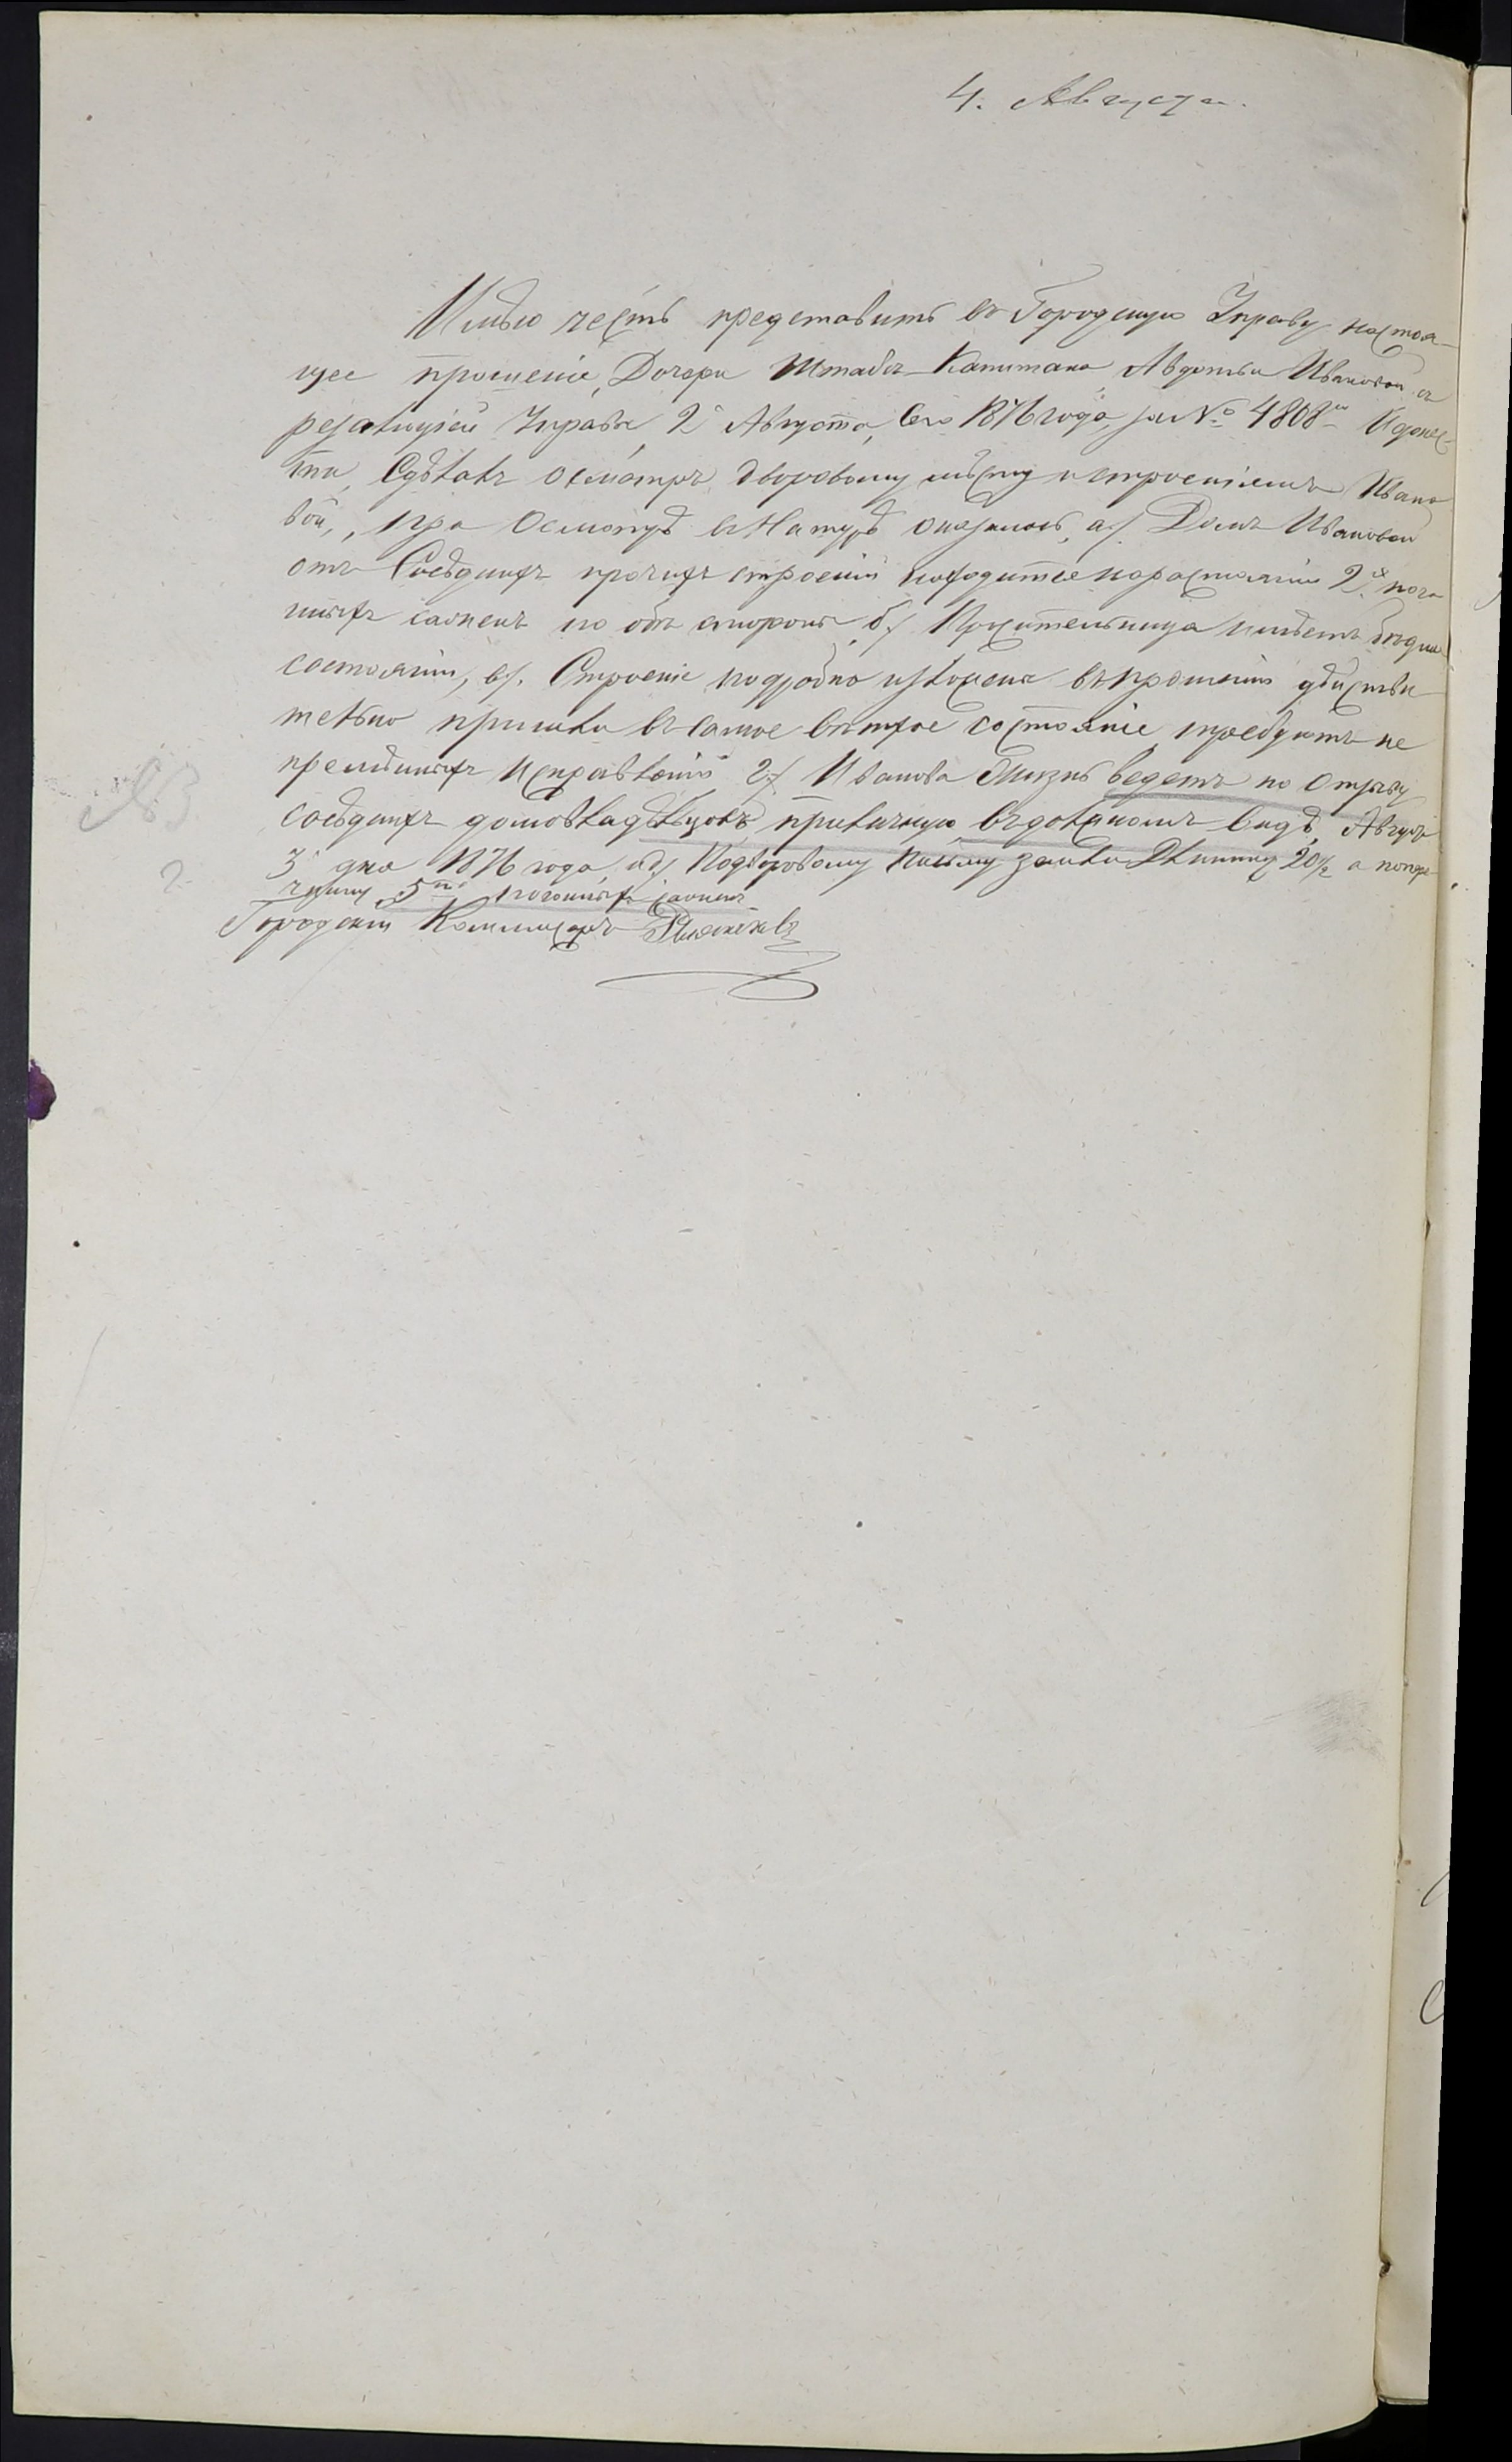 4. Августа.
Имѣю честь представить въ Городскую Управу настоя-
щее прошеніе, Дочери Штабсъ-Капитана, Авдотьи Ивановой съ
резалюціей Управы 2 Августа, Сего 1876 года, за № 4808 И донес-
ти, Сдѣлавъ осмотръ дворовому мѣсту и строеніямъ Ивано
вой, при Осмотрѣ въ Натурѣ оказалось, а/. Домъ Ивановой
отъ Сосѣднихъ прочихъ строеній находится на растоянии 2х пого
нныхъ саженъ по обѣ стороны, б/ Просительница имѣетъ бѣдное
состояніи, в/. Строеніе подробно изложена въ прошеніи дѣистви
тельно пришли въ самое ветхое состояніе требуютъ не
премѣнныхъ Исправленій г/ Иванова Жизнь ведетъ по отзыву
сосѣднихъ домовладѣльцовъ приличную, въ должномъ видѣ, Августа
3 дня 1876 года, д/ По дворовому Плану земли Длиннику 20½ а попере
чнику 5 погонныхъ саженъ
Городской Коммисаръ
№3
2